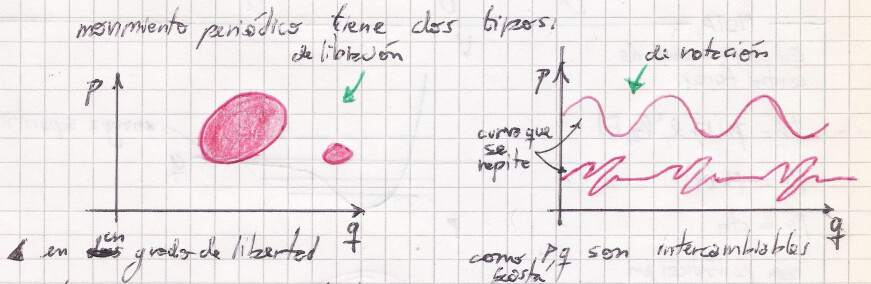 movimiento periódico tiene dos tipos.
de libración
de rotación
p
p
curva que
se
repite
q
q
en grado de libertad
como p,q son intercambiables
basta